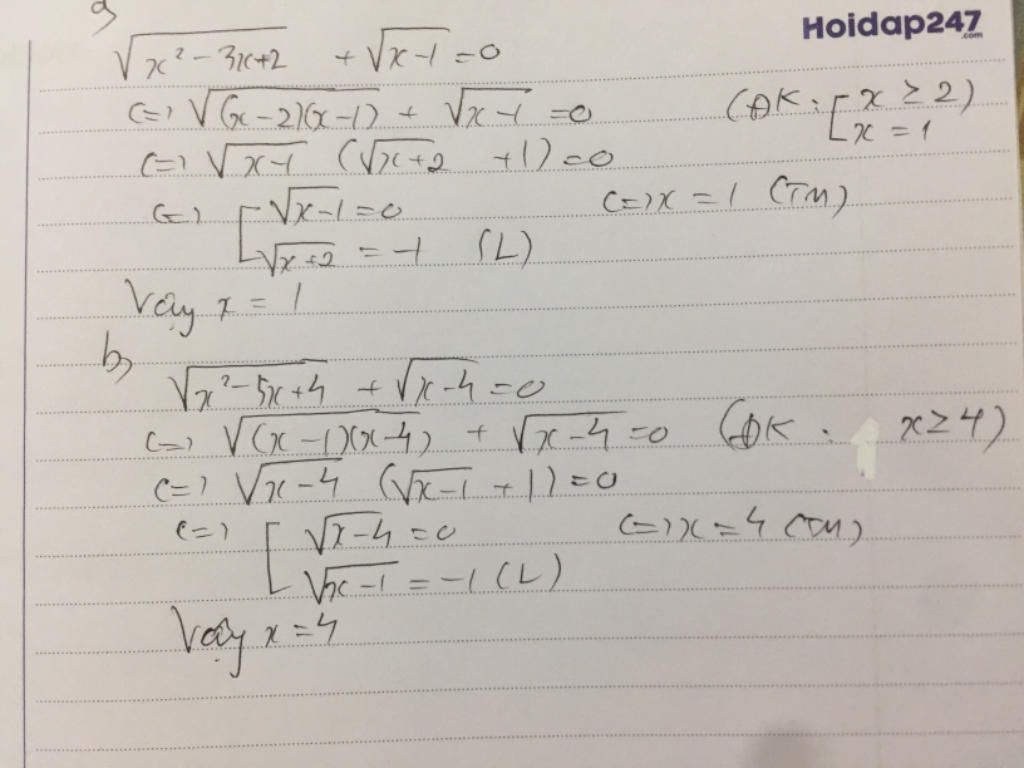 Hoidap247
.com
a)
√(x² - 3x+2) + √(x-1) = 0
(=) √((x-2)(x-1)) + √(x-1) = 0 (ĐK: [ x ≥ 2)
(=) √(x-1) (√(x+2) + 1) = 0 x = 1
(=) [ √(x-1) = 0 (=) x = 1 (TM)
√(x+2) = -1 (L)
Vậy x = 1
b)
√(x² - 5x+4) + √(x-4) = 0
(=) √((x-1)(x-4)) + √(x-4) = 0 (ĐK: x ≥ 4)
(=) √(x-4) (√(x-1) + 1) = 0
(=) [ √(x-4) = 0 (=) x = 4 (TM)
√(x-1) = -1 (L)
Vậy x = 4